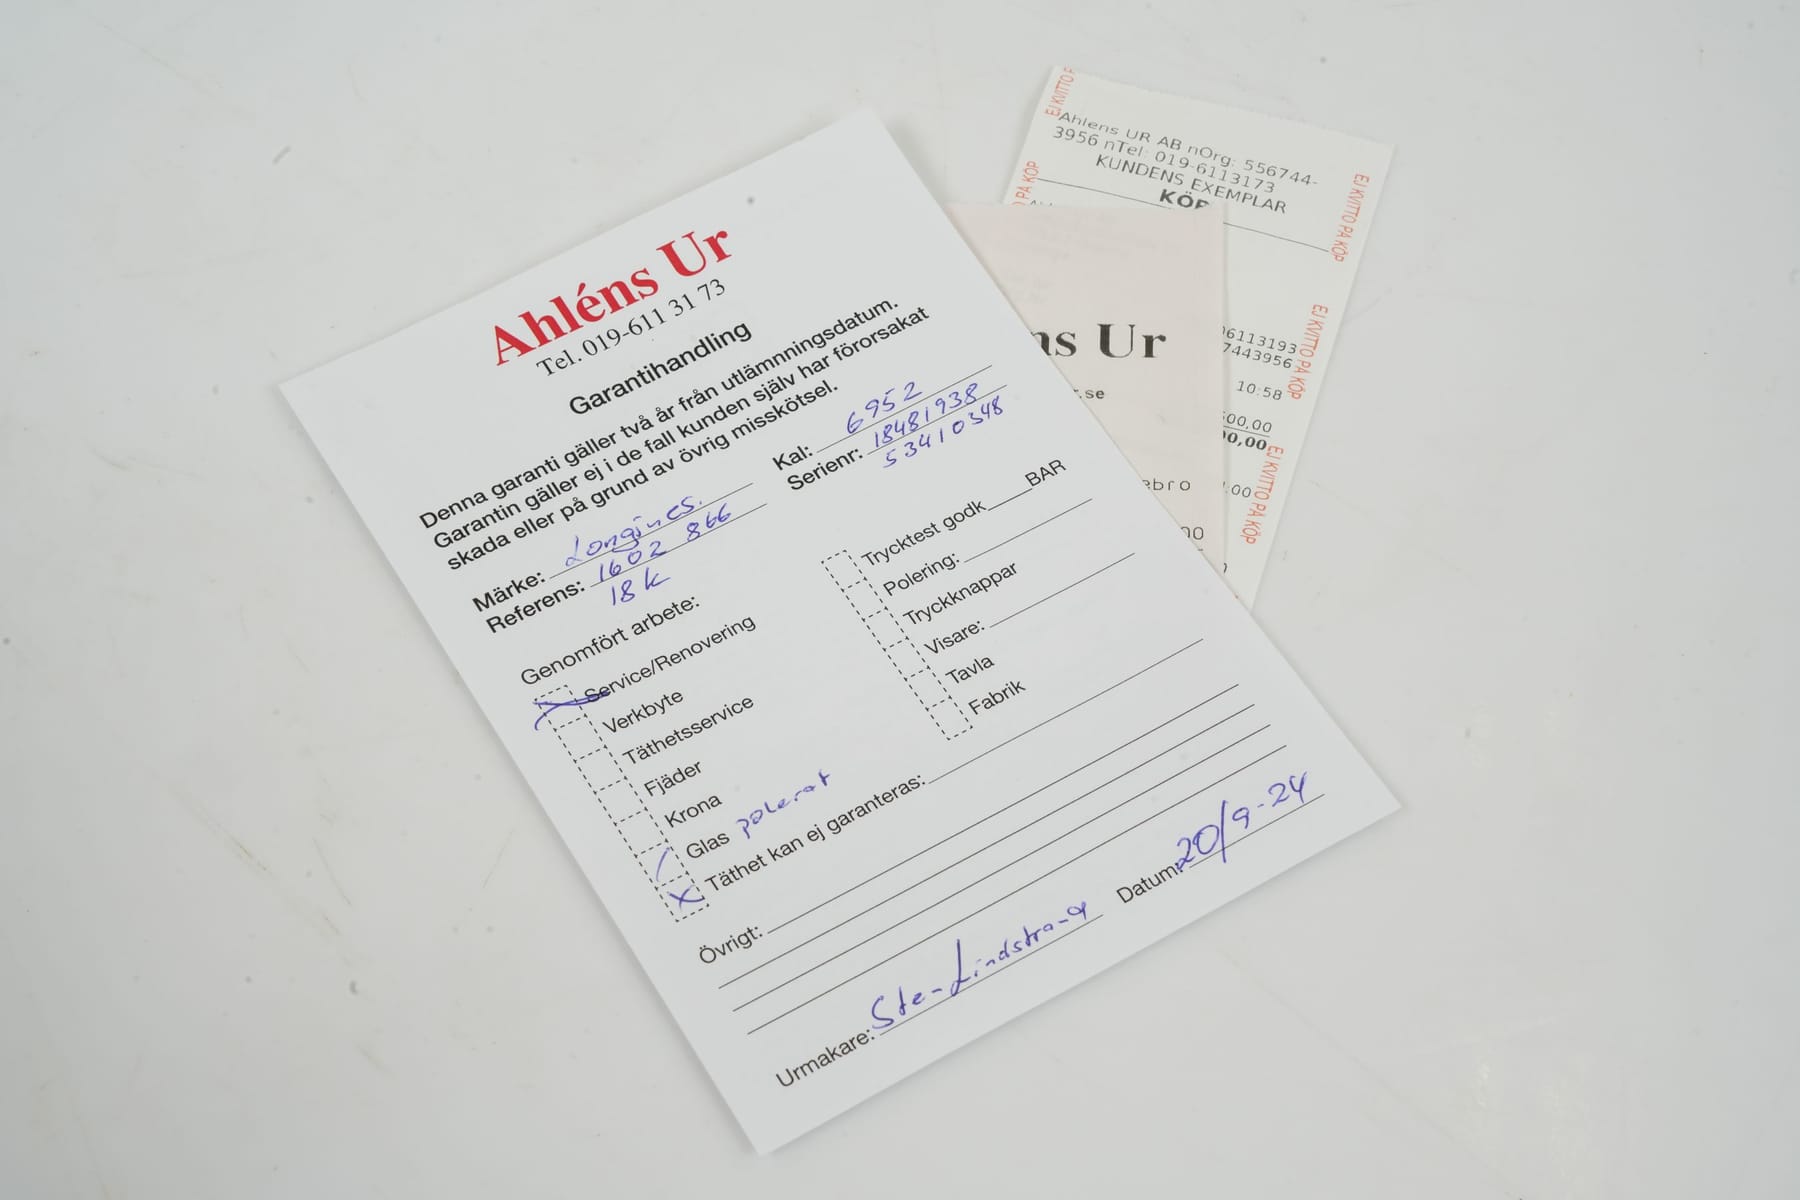 Ahléns Ur
Tel. 019-611 31 73
Garantihandling
Denna garanti gäller två år från utlämnningsdatum.
Garantin gäller ej i de fall kunden själv har förorsakat
skada eller på grund av övrig misskötsel.
Märke: Longines.
Referens: 1602 866
18 k
Kal: 6952
Serienr: 18481938
53410348
Genomfört arbete:
Service/Renovering
Verkbyte
Täthetsservice
Fjäder
Krona
Glas polerat
Täthet kan ej garanteras:
Trycktest godk BAR
Polering:
Tryckknappar
Visare:
Tavla
Fabrik
Övrigt:
Urmakare: Lindstrand
Datum: 20/9-24
Ahlens UR AB nOrg: 556744-
3956 nTel: 019-6113173
KUNDENS EXEMPLAR
KÖP
EJ KVITTO PÅ KÖP
EJ KVITTO PÅ KÖP
EJ KVITTO PÅ KÖP
06113193
7443956
10:58
00,00
00,00
.00
ns Ur
r.se
ebro
00